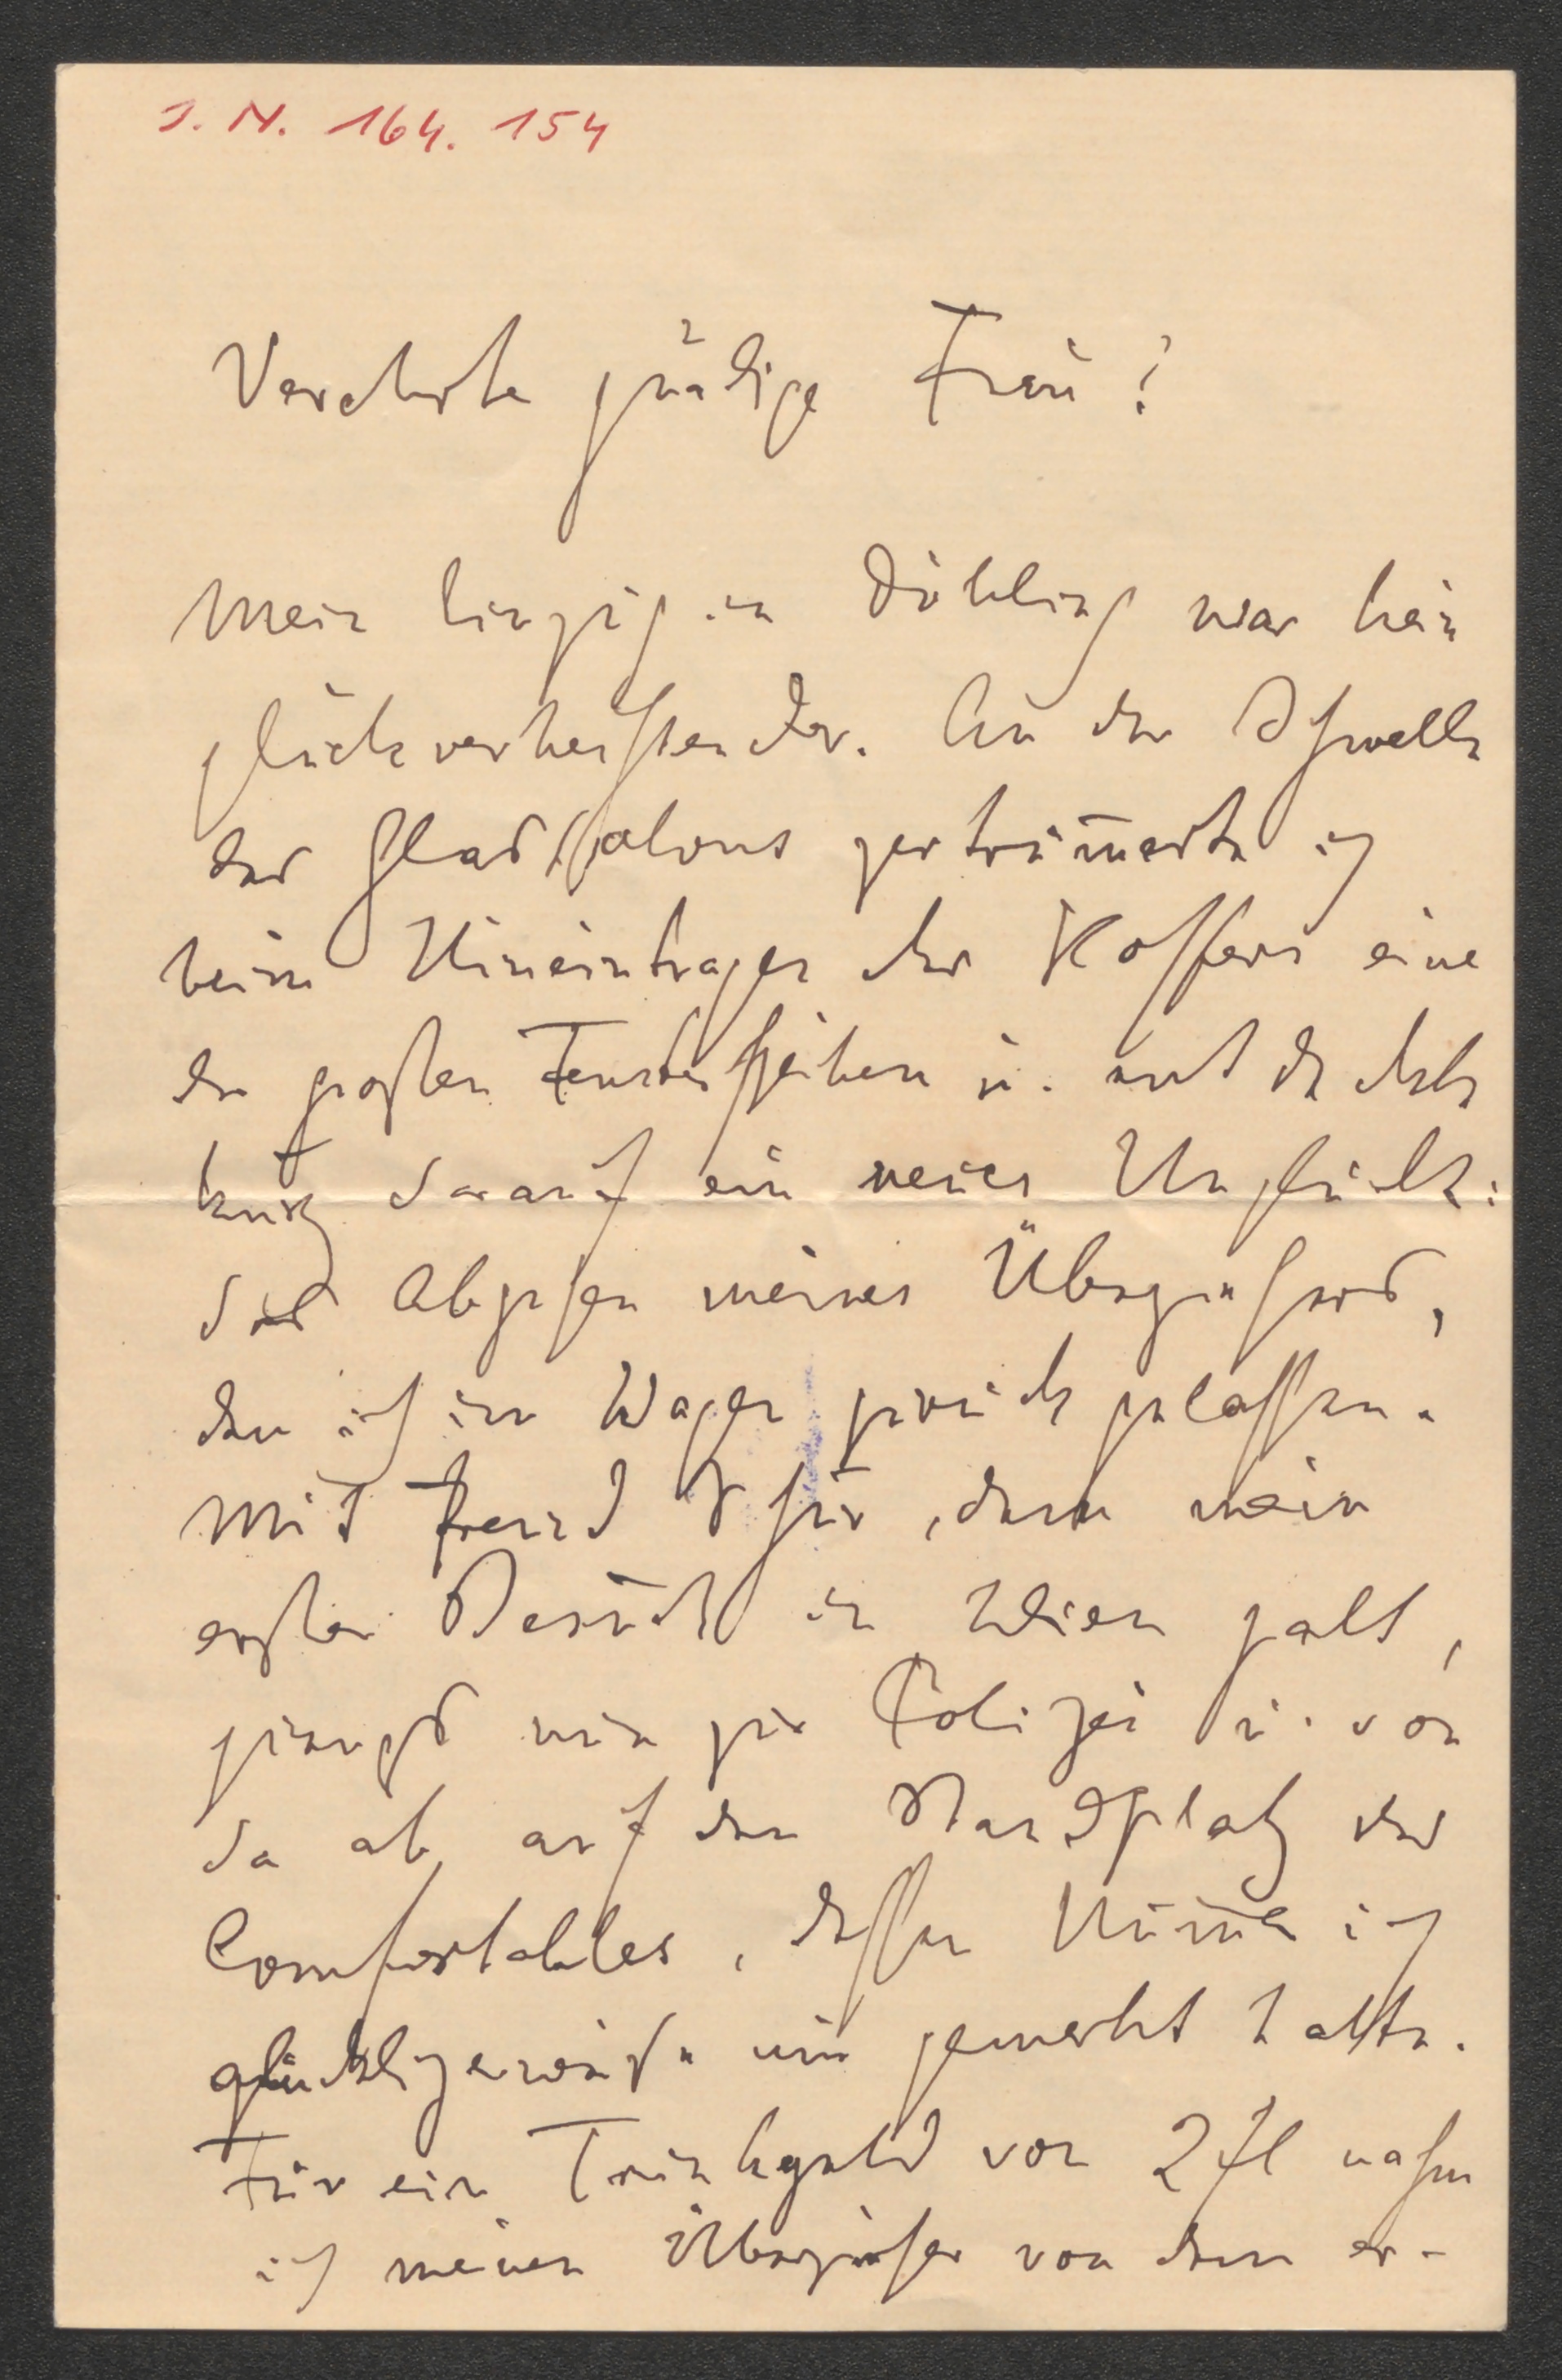 I. N. 164. 154
Verehrte gnädige Frau!
Mein Einzug in Döbling war kein
glückverheissender. An der Schwelle
des Glassalons zertrüm̄erte ich
beim Hineintragen des Koffers eine
der grossen Fensterscheiben u. entdeckte
kurz darauf ein neues Unglück:
das Abgehen meines Überziehers,
den ich im Wagen zurückgelassen.
Mit Freund Schur, dem mein
erster Besuch in Wien galt,
giengs nun zur Polizei u. von
da ab auf den Standplatz des
Comfortables, dessen Num̄er ich
glücklicherweise mir gemerkt hatte.
Für ein Trinkgeld von 2 fl nahm
ich meinen Überzieher von dem er-